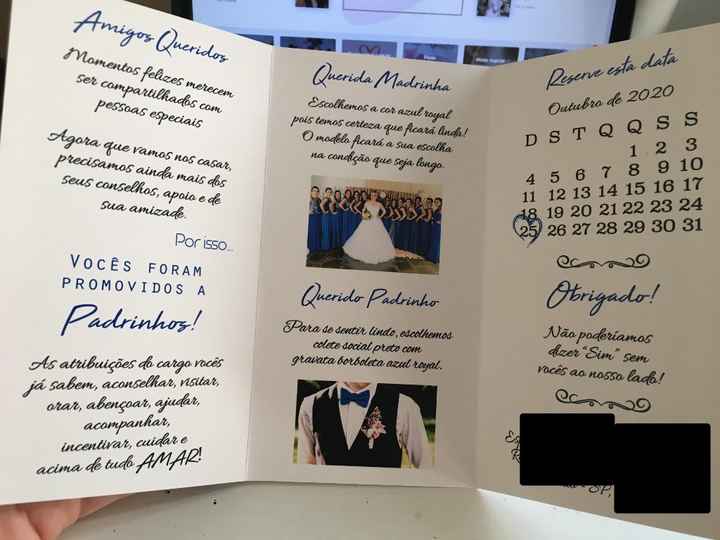 Amigos Queridos
Momentos felizes merecem
ser compartilhados com
pessoas especiais
Agora que vamos nos casar,
precisamos ainda mais dos
seus conselhos, apoio e de
sua amizade.
Por isso...
VOCÊS FORAM
PROMOVIDOS A
Padrinhos!
As atribuições do cargo vocês
já sabem, aconselhar, visitar,
orar, abençoar, ajudar,
acompanhar,
incentivar, cuidar e
acima de tudo AMAR!
Querida Madrinha
Escolhemos a cor azul royal
pois temos certeza que ficará linda!
O modelo ficará a sua escolha
na condição que seja longo.
Querido Padrinho
Para se sentir lindo, escolhemos
colete social preto com
gravata borboleta azul royal.
Reserve esta data
Outubro de 2020
D S T Q Q S S
1 2 3
4 5 6 7 8 9 10
11 12 13 14 15 16 17
18 19 20 21 22 23 24
25 26 27 28 29 30 31
Obrigado!
Não poderíamos
dizer "Sim" sem
vocês ao nosso lado!
SP,